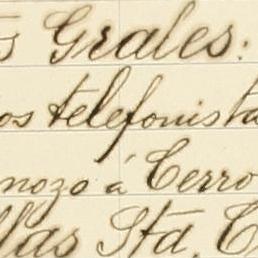 s Grales:
os telefonista
nozo á Cerro
llas Sta. C